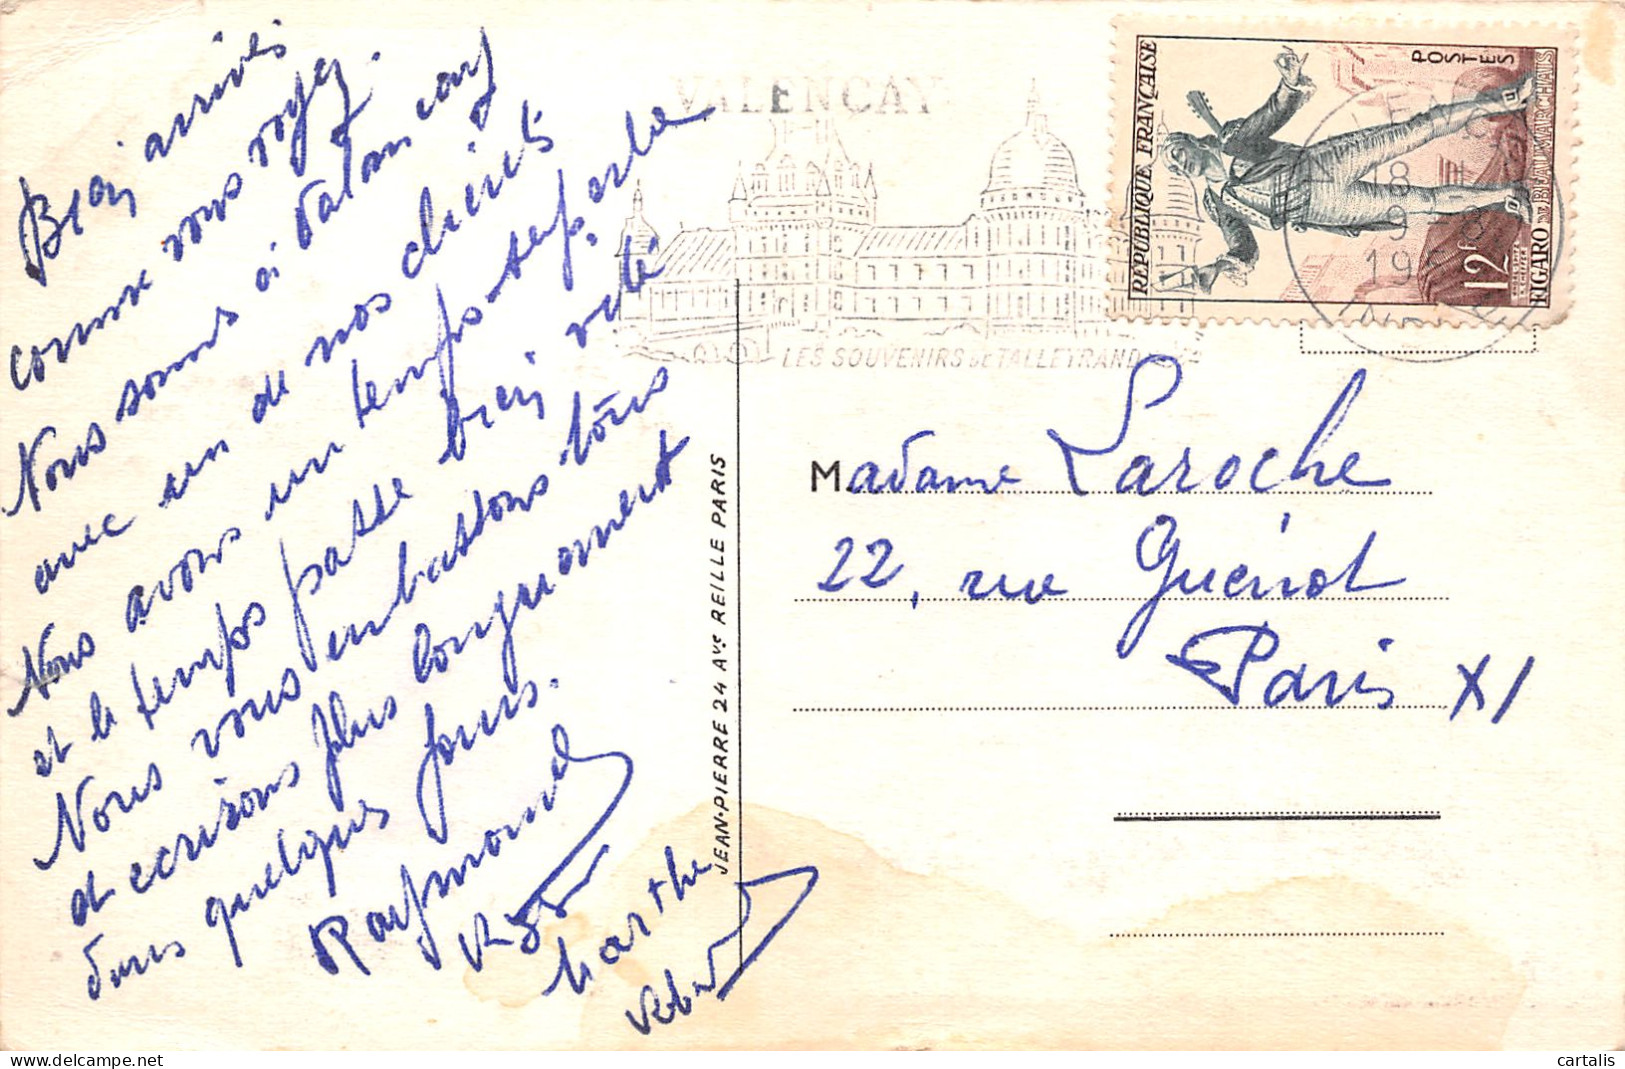 Bien arrivés
comme vous voyez.
Nous sommes à Valancay
avec un de nos clients
Nous avons un temps superbe
et le temps passe bien vite
Nous vous embrassons tous
et ecrirons plus longuement
dans quelques jours.
Raymond
Marthe
VALENCAY
LES SOUVENIRS DE TALLEYRAND
REPUBLIQUE FRANÇAISE
POSTES
12f
FIGARO DE BEAUMARCHAIS
18 H
9-8
INDRE
Madame Laroche
22, rue Guénot
Paris XI
JEAN-PIERRE 24 AVUE REILLE PARIS
cartalis